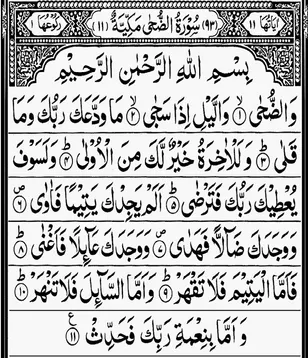 اٰیَاتُهَا ۱۱ (۹۳) سُوْرَةُ الضُّحٰى مَكِّیَّةٌ (۱۱) رُكُوْعُهَا ۱
بِسْمِ اللّٰهِ الرَّحْمٰنِ الرَّحِیْمِ
وَالضُّحٰى ۙ﴿۱﴾ وَالَّیْلِ اِذَا سَجٰى ۙ﴿۲﴾ مَا وَدَّعَكَ رَبُّكَ وَمَا
قَلٰى ؕ﴿۳﴾ وَلَلْاٰخِرَةُ خَیْرٌ لَّكَ مِنَ الْاُوْلٰى ؕ﴿۴﴾ وَلَسَوْفَ
یُعْطِیْكَ رَبُّكَ فَتَرْضٰى ؕ﴿۵﴾ اَلَمْ یَجِدْكَ یَتِیْمًا فَاٰوٰى ۪﴿۶﴾
وَوَجَدَكَ ضَآلًّا فَهَدٰى ۪﴿۷﴾ وَوَجَدَكَ عَآئِلًا فَاَغْنٰى ؕ﴿۸﴾
فَاَمَّا الْیَتِیْمَ فَلَا تَقْهَرْ ؕ﴿۹﴾ وَاَمَّا السَّآئِلَ فَلَا تَنْهَرْ ؕ﴿۱۰﴾
وَاَمَّا بِنِعْمَةِ رَبِّكَ فَحَدِّثْ ۧ﴿۱۱﴾